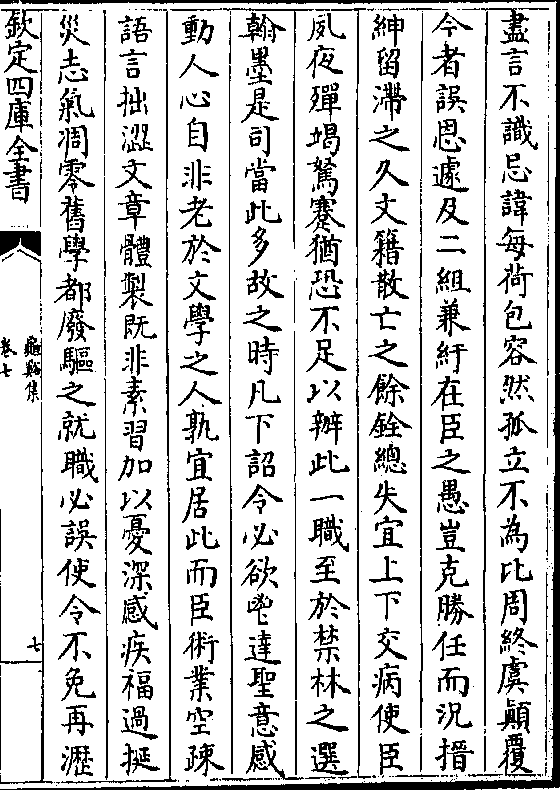 盡言不識忌諱每荷包容然孤立不為比周終虞顛覆
今者誤恩遽及二組兼紆在臣之愚豈克勝任而況搢
紳留滯之久文籍散亡之餘銓總失宜上下交病使臣
夙夜殫竭駑蹇猶恐不足以辦此一職至於禁林之選
翰墨是司當此多故之時凡下詔令必欲鬯達聖意感
動人心自非老於文學之人孰宜居此而臣術業空疎
語言拙澀文章體製既非素習加以憂深感疾福過挻
災志氣凋零舊學都廢驅之就職必誤使令不免再瀝
欽定四庫全書
龜谿集
卷七
七